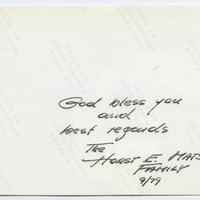 God bless you
and
best regards
The
Horst E.
Family
9/79